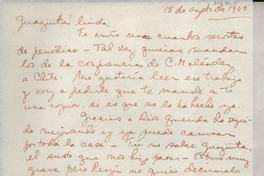 18 de Agosto de 1949
Guagüita linda,
Te envío unos cuantos recortes
de periódico - Tal vez quieras mandar
los de la conferencia de C. Meléndez
a Chile. Me gustaría leer ese trabajo
y voy a pedirle que te mande a ti
una copia, si es que no lo ha hecho ya.
Gracias a Dios querida ha segui
do mejorando y ya puede caminar
por toda la casa - Tú no sabes, guagüita,
el susto que nos hizo pasar - Estuvo muy
grave pero Kerpin no quiso decírselo